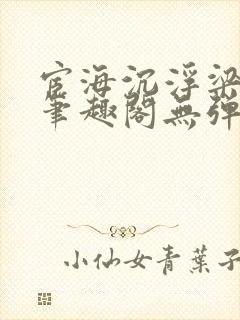 宦海沉浮梁
笔趣閣無弹
小仙女青葉子